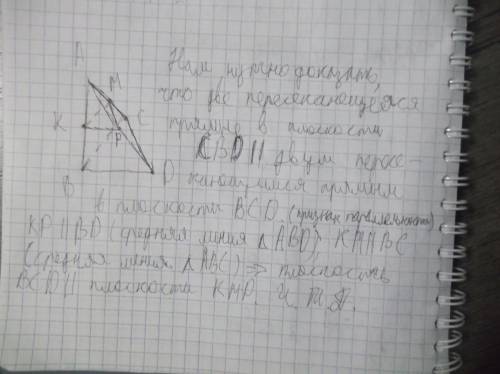 A
M
K
C
P
B
D
Нам нужно доказать,
что две пересекающиеся
прямые в плоскости
CBD || двум пересе-
кающимся прямым
в плоскости BCD (признак параллельности)
KP || BD (средняя линия △ABD); KM || BC
(средняя линия △ABC) ⇒ плоскость
BCD || плоскости KMP. Ч. т. д.